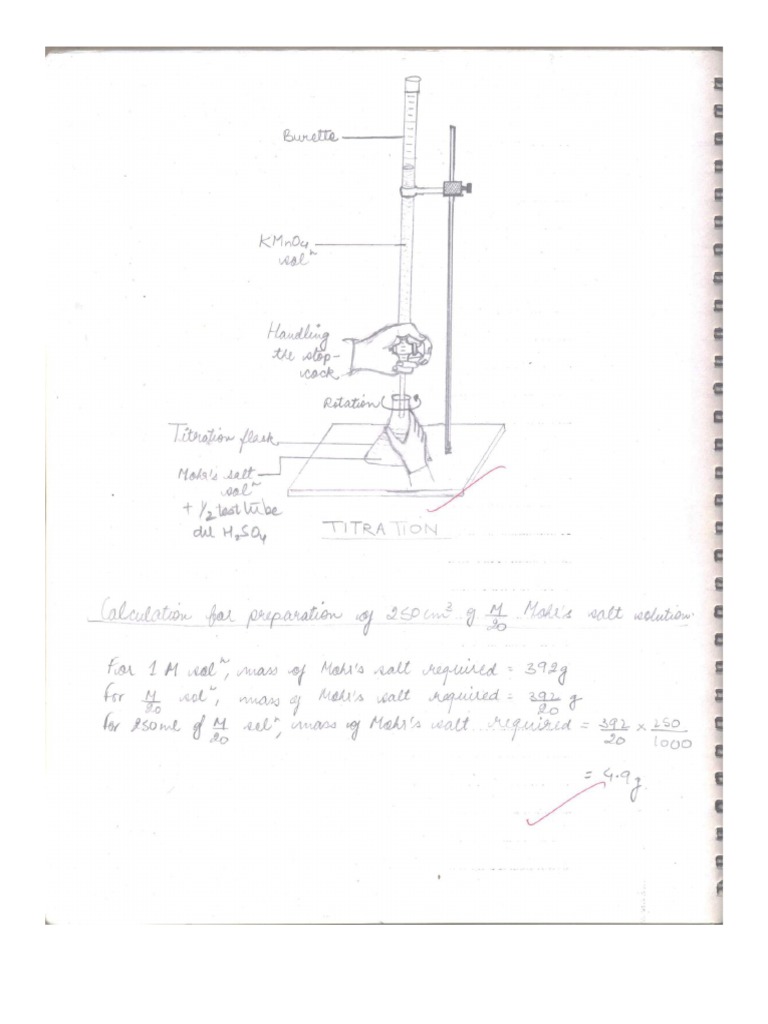 Burette
KMnO4
solⁿ
Handling
the stop-
cock
Rotation
Titration flask
Mohr's salt
solⁿ
+ 1/2 test tube
dil H2SO4
TITRATION
Calculation for preparation of 250cm³ of M/20 Mohr's salt solution.
For 1 M solⁿ, mass of Mohr's salt required = 392g
For M/20 solⁿ, mass of Mohr's salt required = 392/20 g
For 250ml of M/20 solⁿ, mass of Mohr's salt required = 392/20 x 250/1000
= 4.9g